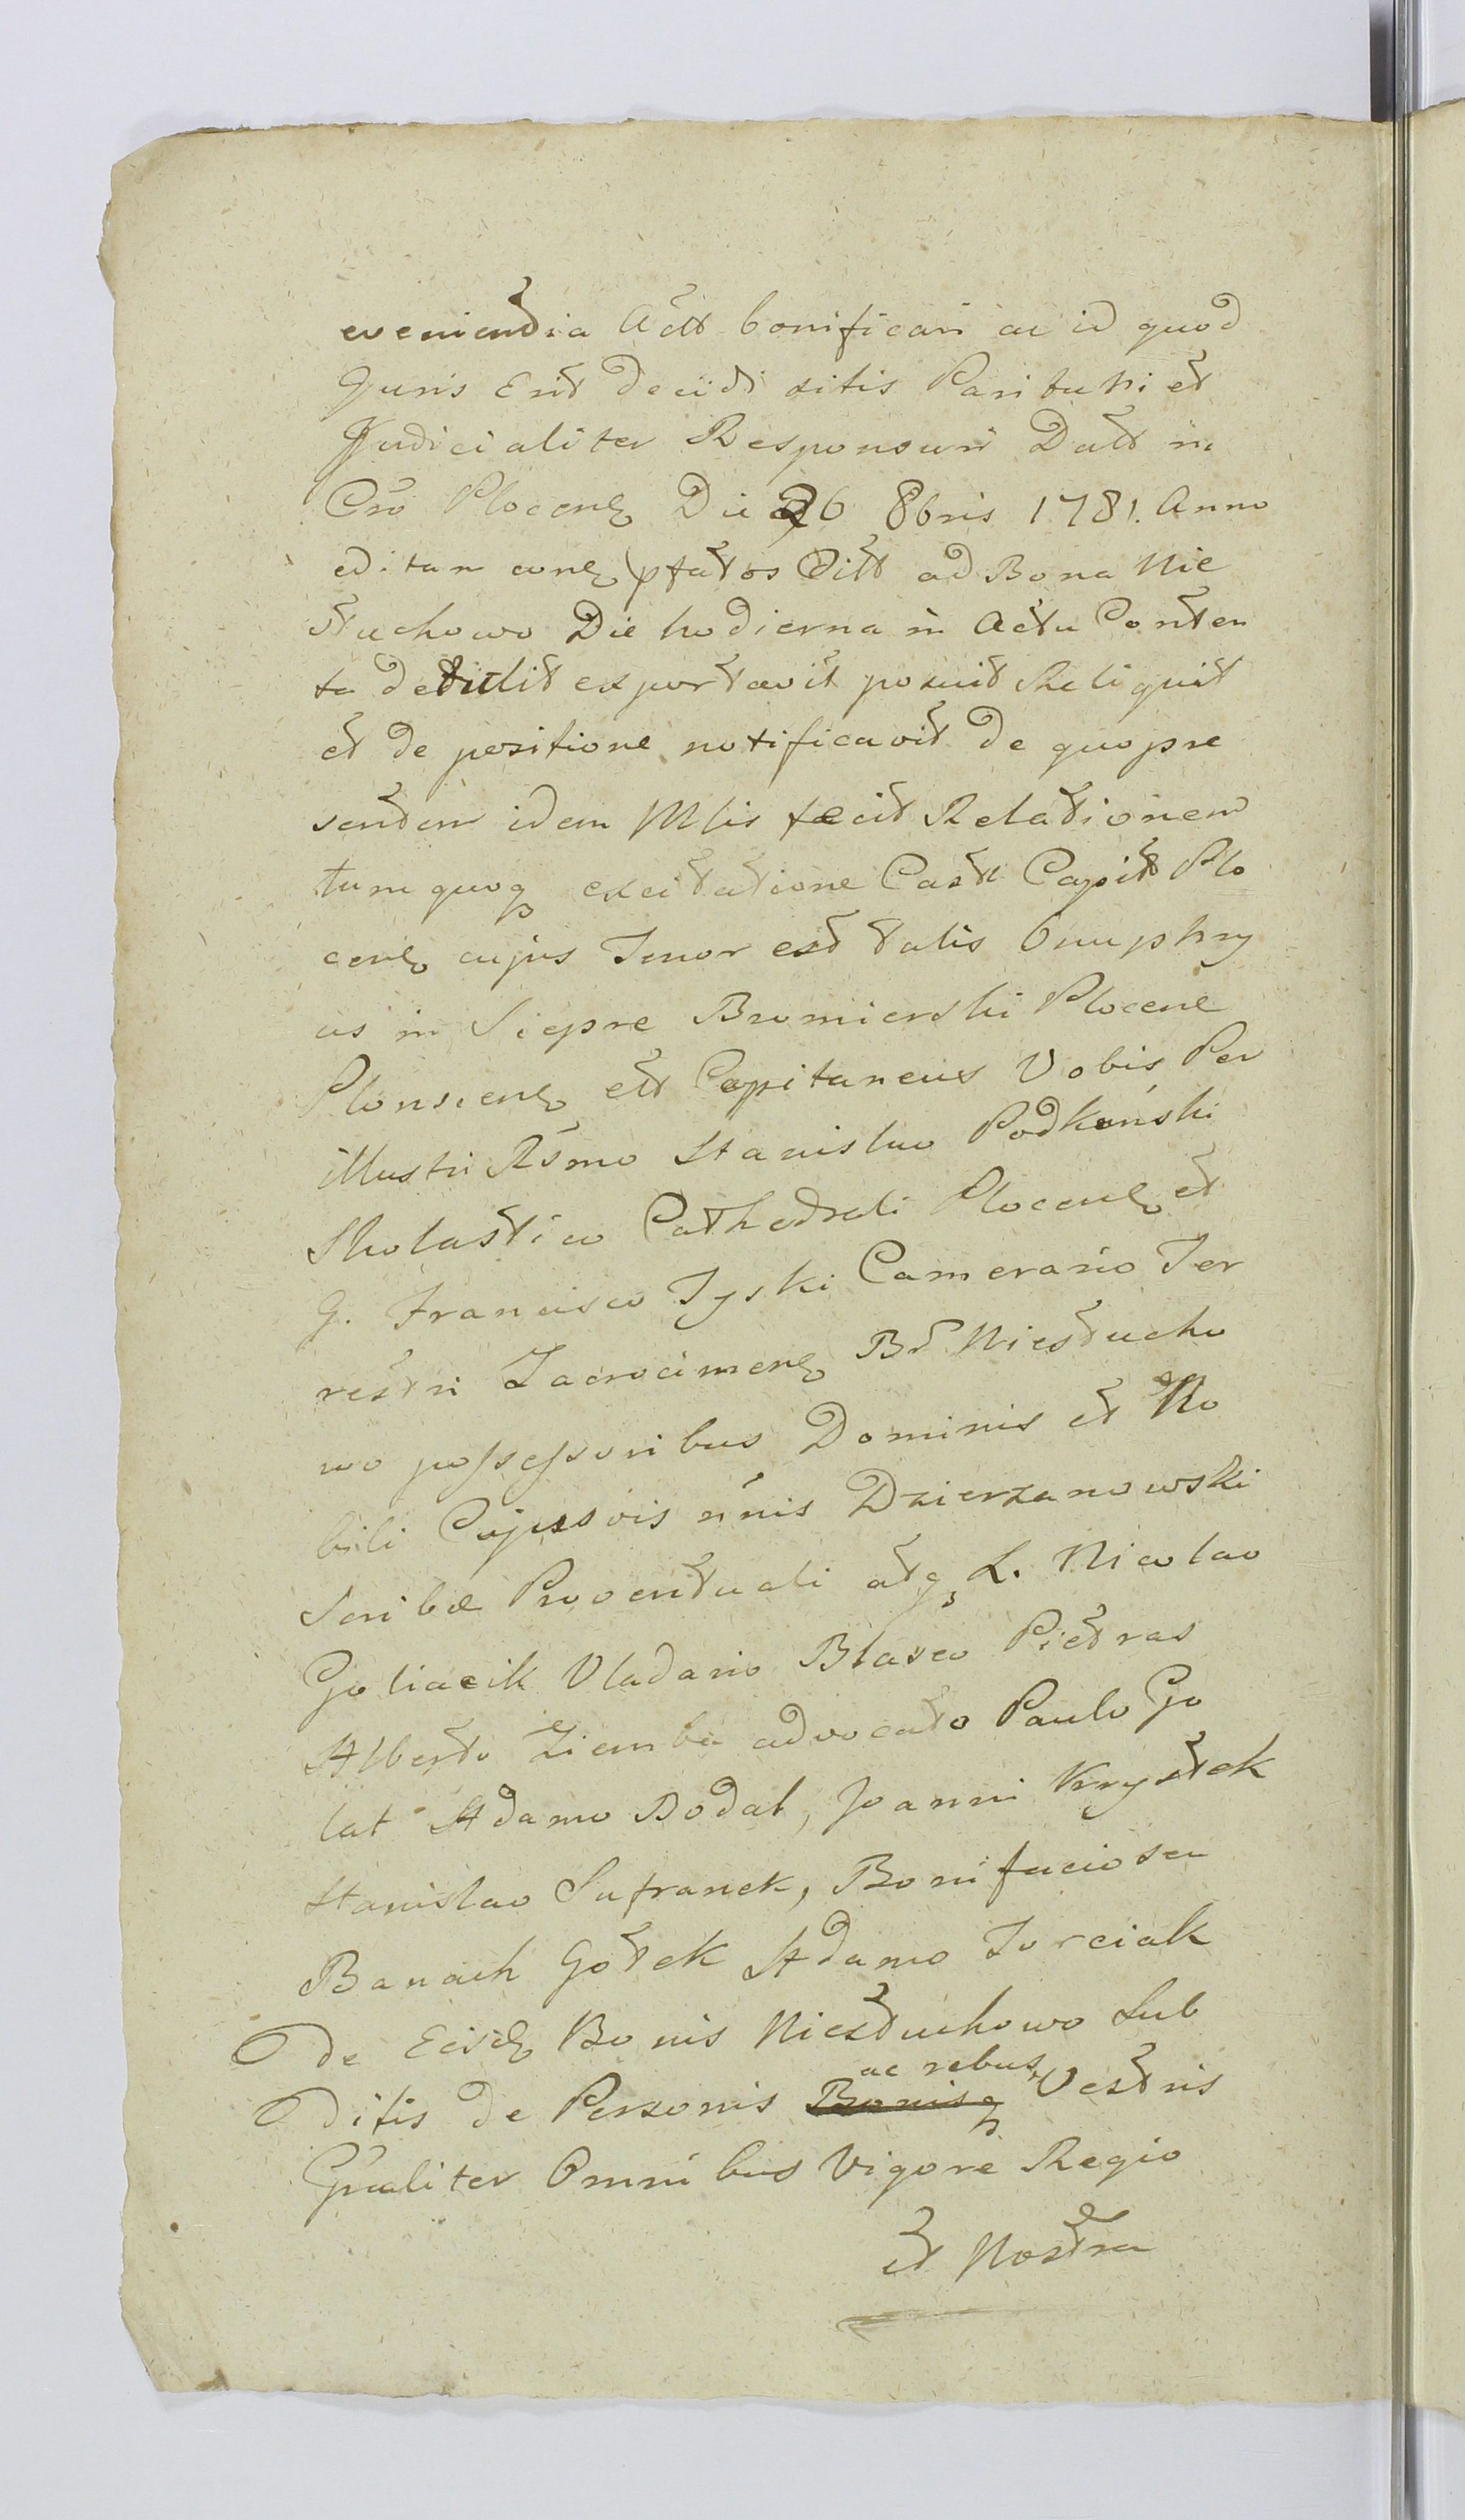 evenientia Actt bonificari ac id quod
Juris Erit decidi sitis Parituri et
Judicialiter Responsuri Datt in
Cro Plocen Die 26 8bris 1781. Anno
editam conq pfatos Citt ad Bona Nie
stuchowo Die hodierna in Actu Conten
ta detulit exportavit posuit Reliquit
et de positione notificavit de quo pre
sentem idem Mlis fecit Relationem
tum quoq excitatione Castr Capit Plo
cen cujus Tenor est talis Onuphry
us in Siepre Bromierski Plocen
Plonscen ett Capitaneus Vobis Per
illustri Rsmo Stanislao Podkański
Sholastico Cathedrali Plocen et
G. Francisco Tyski Camerario Ter
restri Zacrocimen Br Niestucho
wo possessoribus Dominis et No
bili Cujusvis nnis Dzierzanowski
Scribæ Proventuali atq L. Nicolao
Goliacik Vladario Blasco Pietras
Alberto Ziemba advocato Paulo Go
lat Adamo Bodal, Joanni Krystek
Stanislao Sufranek, Bonifacio seu
Banach Gotek Adamo Torciak
de Eisd Bonis Niestuchowo Sub
ditis de Personis Bonisq ac rebus Vestris
Gnaliter Omnibus Vigore Regio
et Nostra